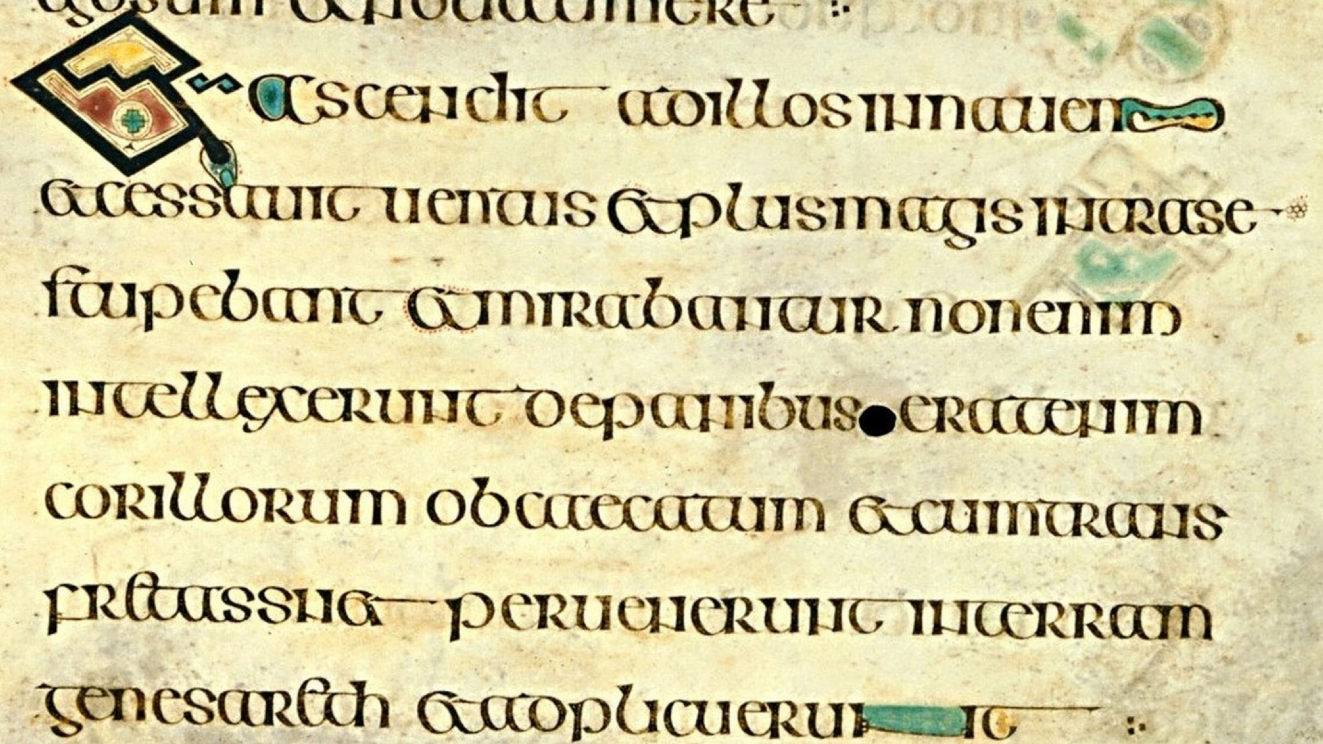 egosum &nolitetimere
Et ascendit adillos innauem
&cessauit uentus &plusmagis intrase
stupebant &mirabantur nonenim
intellexerunt depanibus eratenim
corillorum obcaecatum &cumtrans
fr&assent peruenerunt interram
genesar&h &adplicuerunt